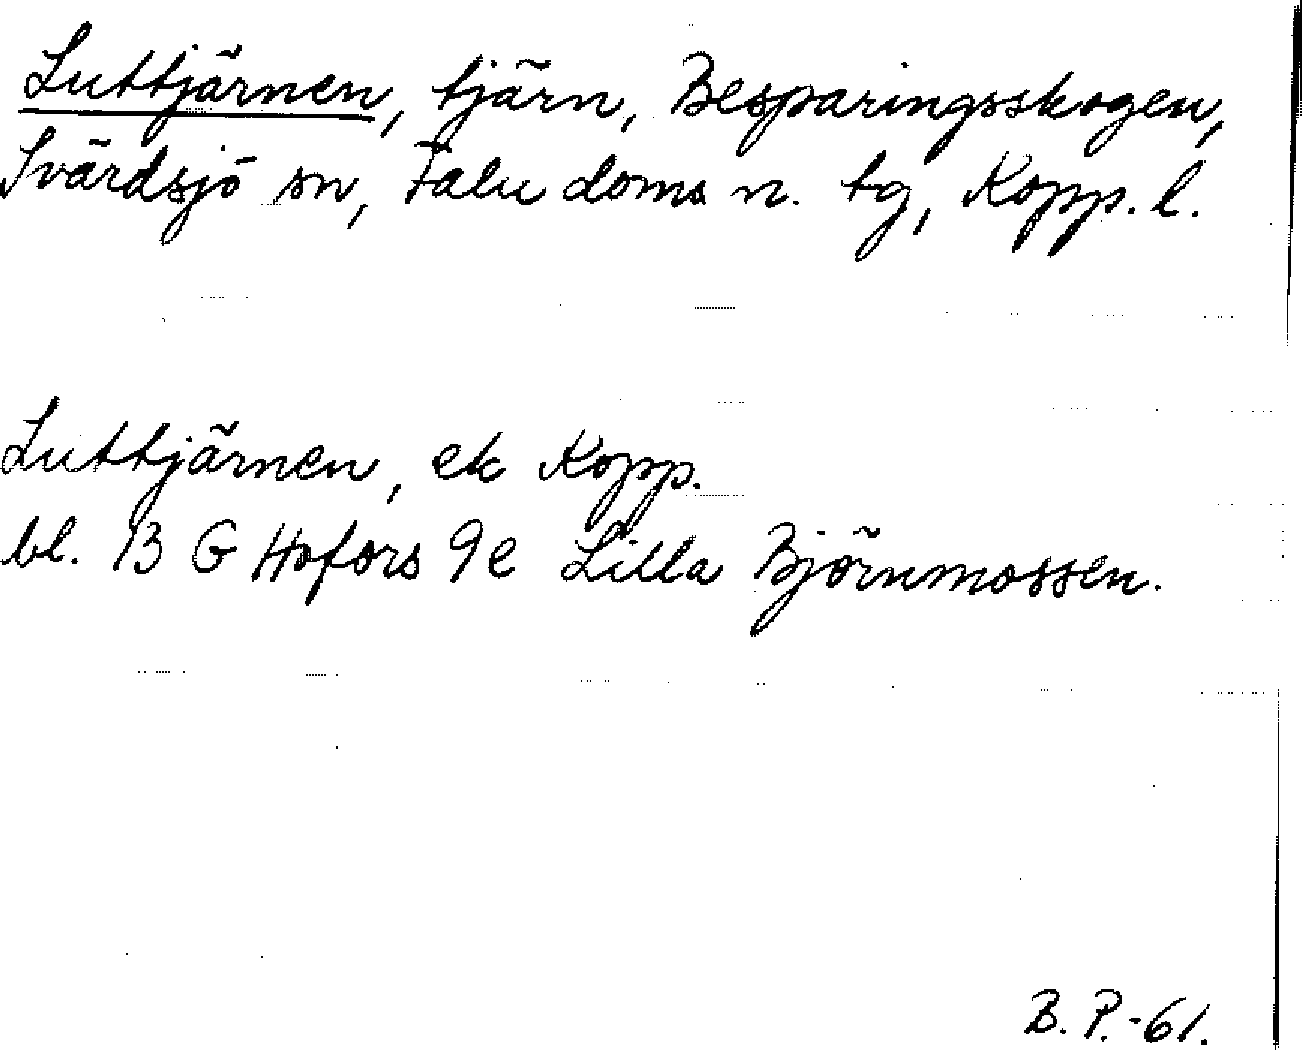 Luttjärnen, tjärn, Besparingsskogen,
Svärdsjö sn, Falu doms n. tg, Kopp. l.
Luttjärnen, ek Kopp.
bl. 13 G Hofors 9e Lilla Björnmossen.
B. P.-61.